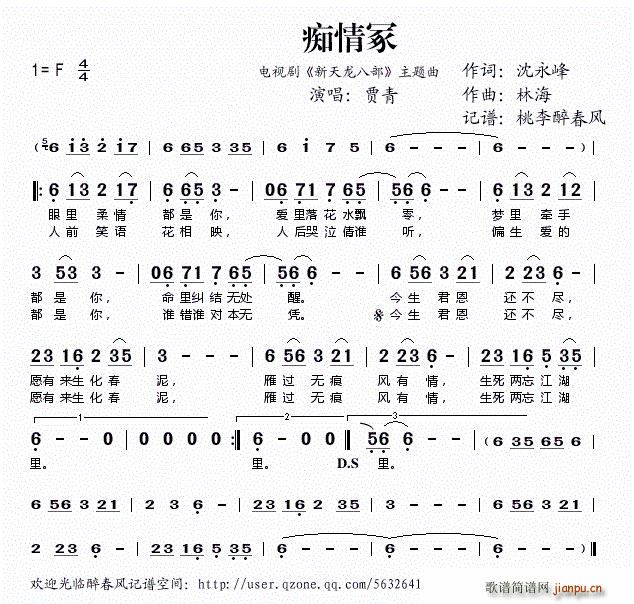 痴情冢
1=F 4/4
电视剧《新天龙八部》主题曲 作词：沈永峰
演唱：贾青 作曲：林海
记谱：桃李醉春风
(5 6 i3 2 i7 | 6 65 3 35 | 6 i 7 5 | 6 - - - | 6 - - - )|
‖: 6 13 2 17 | 6 65 3 - | 06 71 7 65 | 56 6 - - | 6 13 2 12 |
眼里 柔情 都是 你， 爱里落花水飘 零， 梦里 牵手
人前 笑语 花相 映， 人后哭泣倩谁 听， 偏生 爱的
3 53 3 - | 06 71 7 65 | 56 6 - - | 6 56 3 21 | 2 23 6 - |
都是 你， 命里纠结无处 醒。 今生 君恩 还不 尽，
都是 你， 谁错谁对本无 凭。 𝄋今生 君恩 还不 尽，
23 16 2 35 | 3 - - - | 6 56 3 21 | 2 23 6 - | 23 16 5 35 |
愿有来生化春 泥， 雁过 无痕 风有 情， 生死两忘江湖
愿有来生化春 泥， 雁过 无痕 风有 情， 生死两忘江湖
1 2 3
6 - - 0 | 0 0 0 0 :‖ 6 - - 0 ‖ 56 6 - - | (6 35 65 6 |
里。 里。 D.S 里。
6 56 3 21 | 2 3 6 - | 23 16 2 35 | 3 - - - | 6 56 3 21 |
2 23 6 - | 23 16 5 35 | 6 - - - | 6 - - - )‖
欢迎光临醉春风记谱空间：http://user.qzone.qq.com/5632641
歌谱简谱网
jianpu.cn